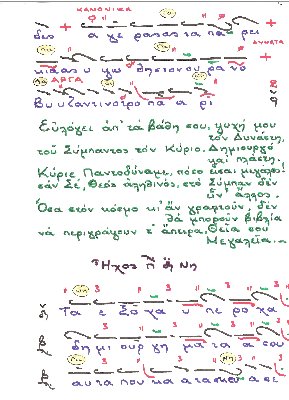 ΚΑΝΟΝΙΚΑ
δες α γε ρασασ τα πα ρει
ΔΥΝΑΤΑ
ΑΡΓΑ
Βυ υ ζαντινοτρο πα α ρι
Εὐλόγει ἀπ' τὰ βάθη σου, ψυχή μου
τὸν Δυνάστη,
τοῦ Σύμπαντος τὸν Κύριο. Δημιουργὸ
καὶ πλάστη.
Κύριε Παντοδύναμε, πόσο εἶσαι μεγάλος!
σὰν Σέ, Θεὸς ἀληθινός, στὸ Σύμπαν δὲν
εἶν' ἄλλος.
Ὅσα στὸν κόσμο κι' ἂν γραφτοῦν, δὲν
θὰ μποροῦν βιβλία
νὰ περιγράψουν τ' ἄπειρα, Θεῖα σου
Μεγαλεῖα.
Ἦχος Νη
Τα ε ξο χα υ πε ρο χα
δη μι ουρ γη μα τα α σου
αυτα που κα ατασκευα σε